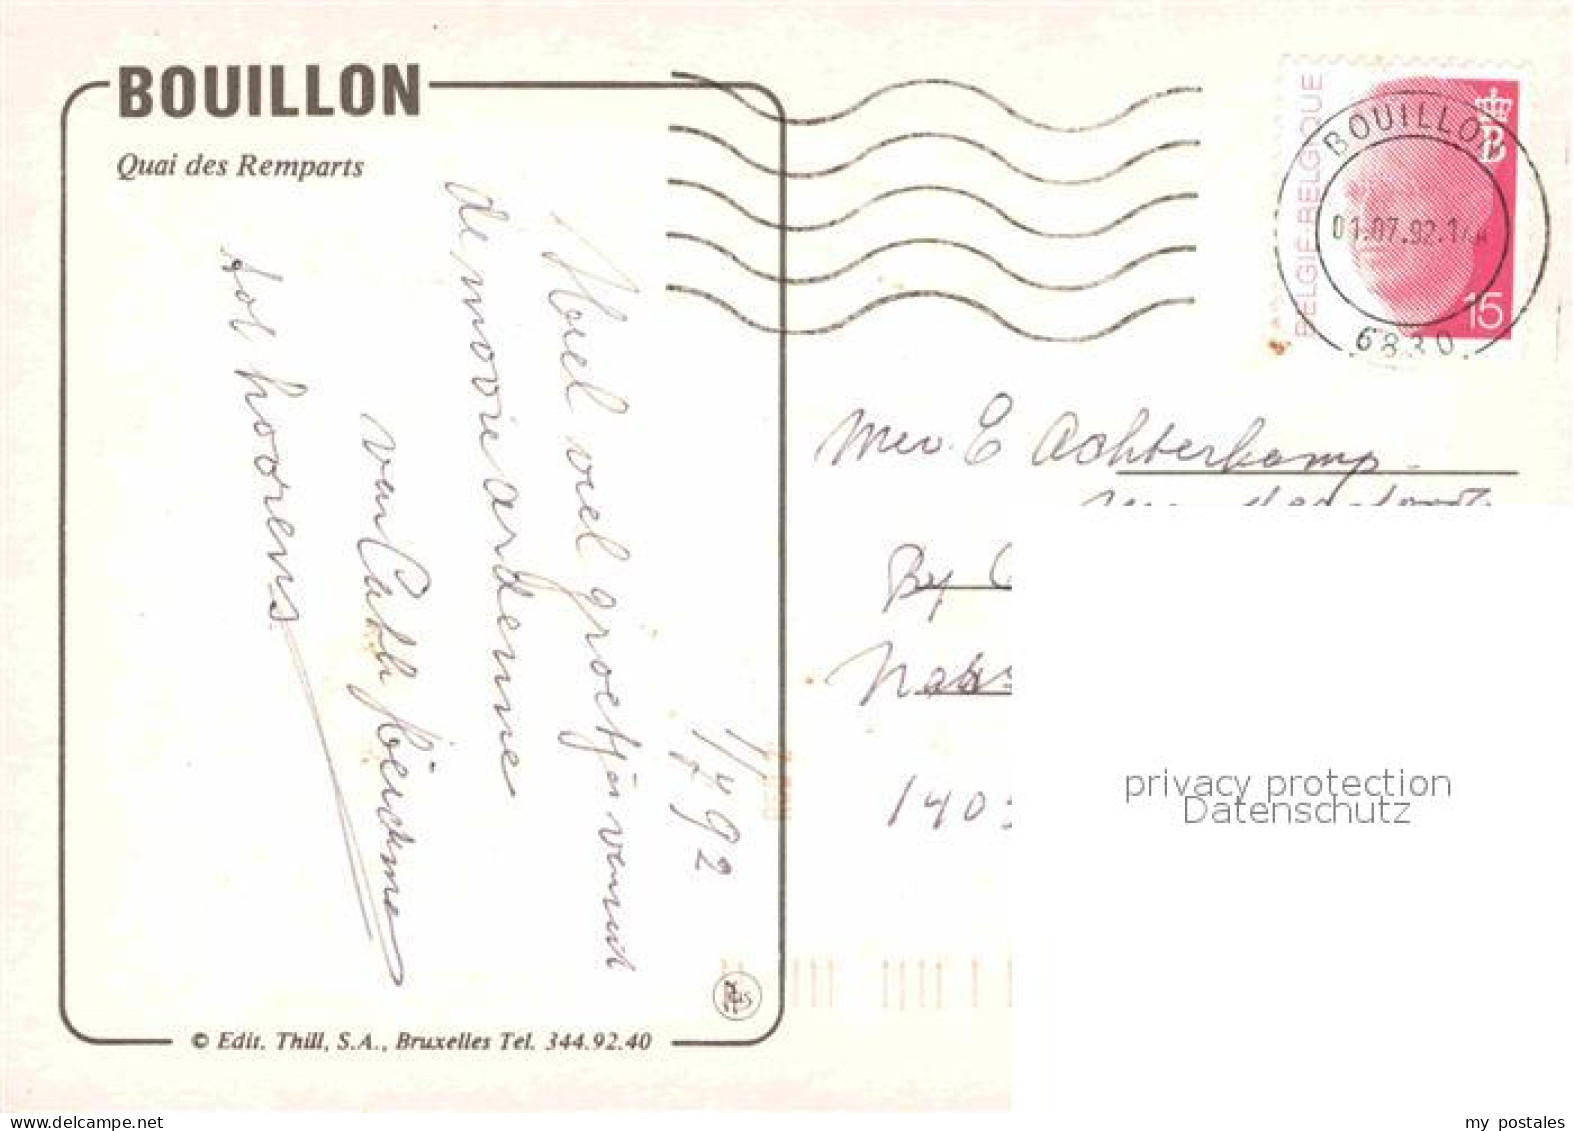 BOUILLON
Quai des Remparts
1/7 92
Heel veel groetjes vanuit
de mooie ardenne
van Cath
tot hoorens
© Edit. Thill, S.A., Bruxelles Tel. 344.92.40
BELGIE-BELGIQUE
B
15
BOUILLON
01.07.92.1
6830
Mev. E Achterkamp
By
140
privacy protection
Datenschutz
my postales
delcampe.net